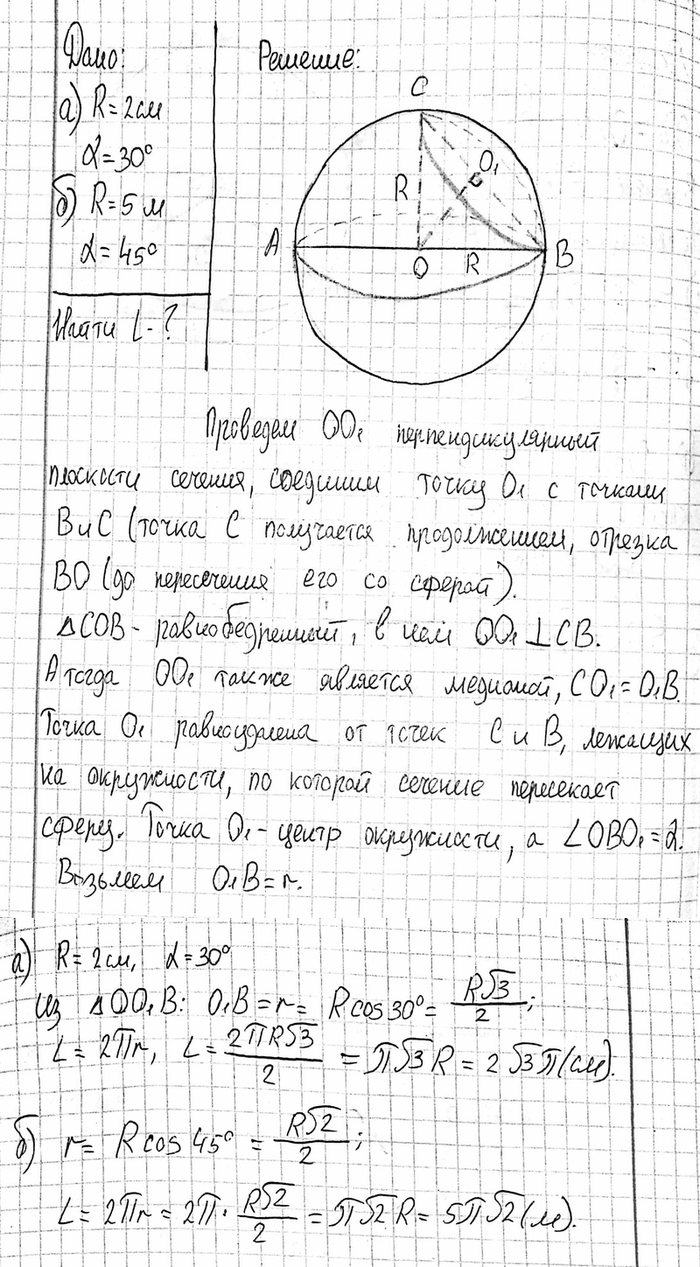 Дано:
а) R=2см
α=30°
б) R=5 м
α=45°
Найти L-?
Решение:
C
O₁
R
A
O
R
B
Проведем OO₁ перпендикулярный
плоскости сечения, соединим точку O₁ с точками
B и C (точка C получается продолжением, отрезка
BO (до пересечения его со сферой).
△COB - равнобедренный, в нем OO₁ ⊥ CB.
А тогда OO₁ также является медианой, CO₁=O₁B.
Точка O₁ равноудалена от точек C и B, лежащих
на окружности, по которой сечение пересекает
сферу. Точка O₁ - центр окружности, а ∠OBO₁=α.
Возьмем O₁B=r.
а) R=2см, α=30°
Из △OO₁B: O₁B=r= R cos 30° = R√3/2;
L = 2πr, L = 2πR√3/2 = π√3 R = 2√3π (см).
б) r= R cos 45° = R√2/2;
L = 2πr = 2π · R√2/2 = π√2 R = 5π√2 (м).